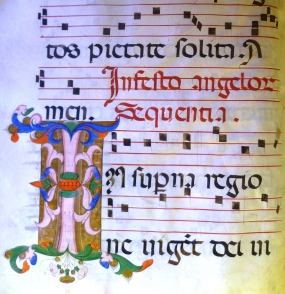 tos pietate solita. A
In festo angelor
men. Sequentia.
In sup̄na regio
ne iugēt dei in